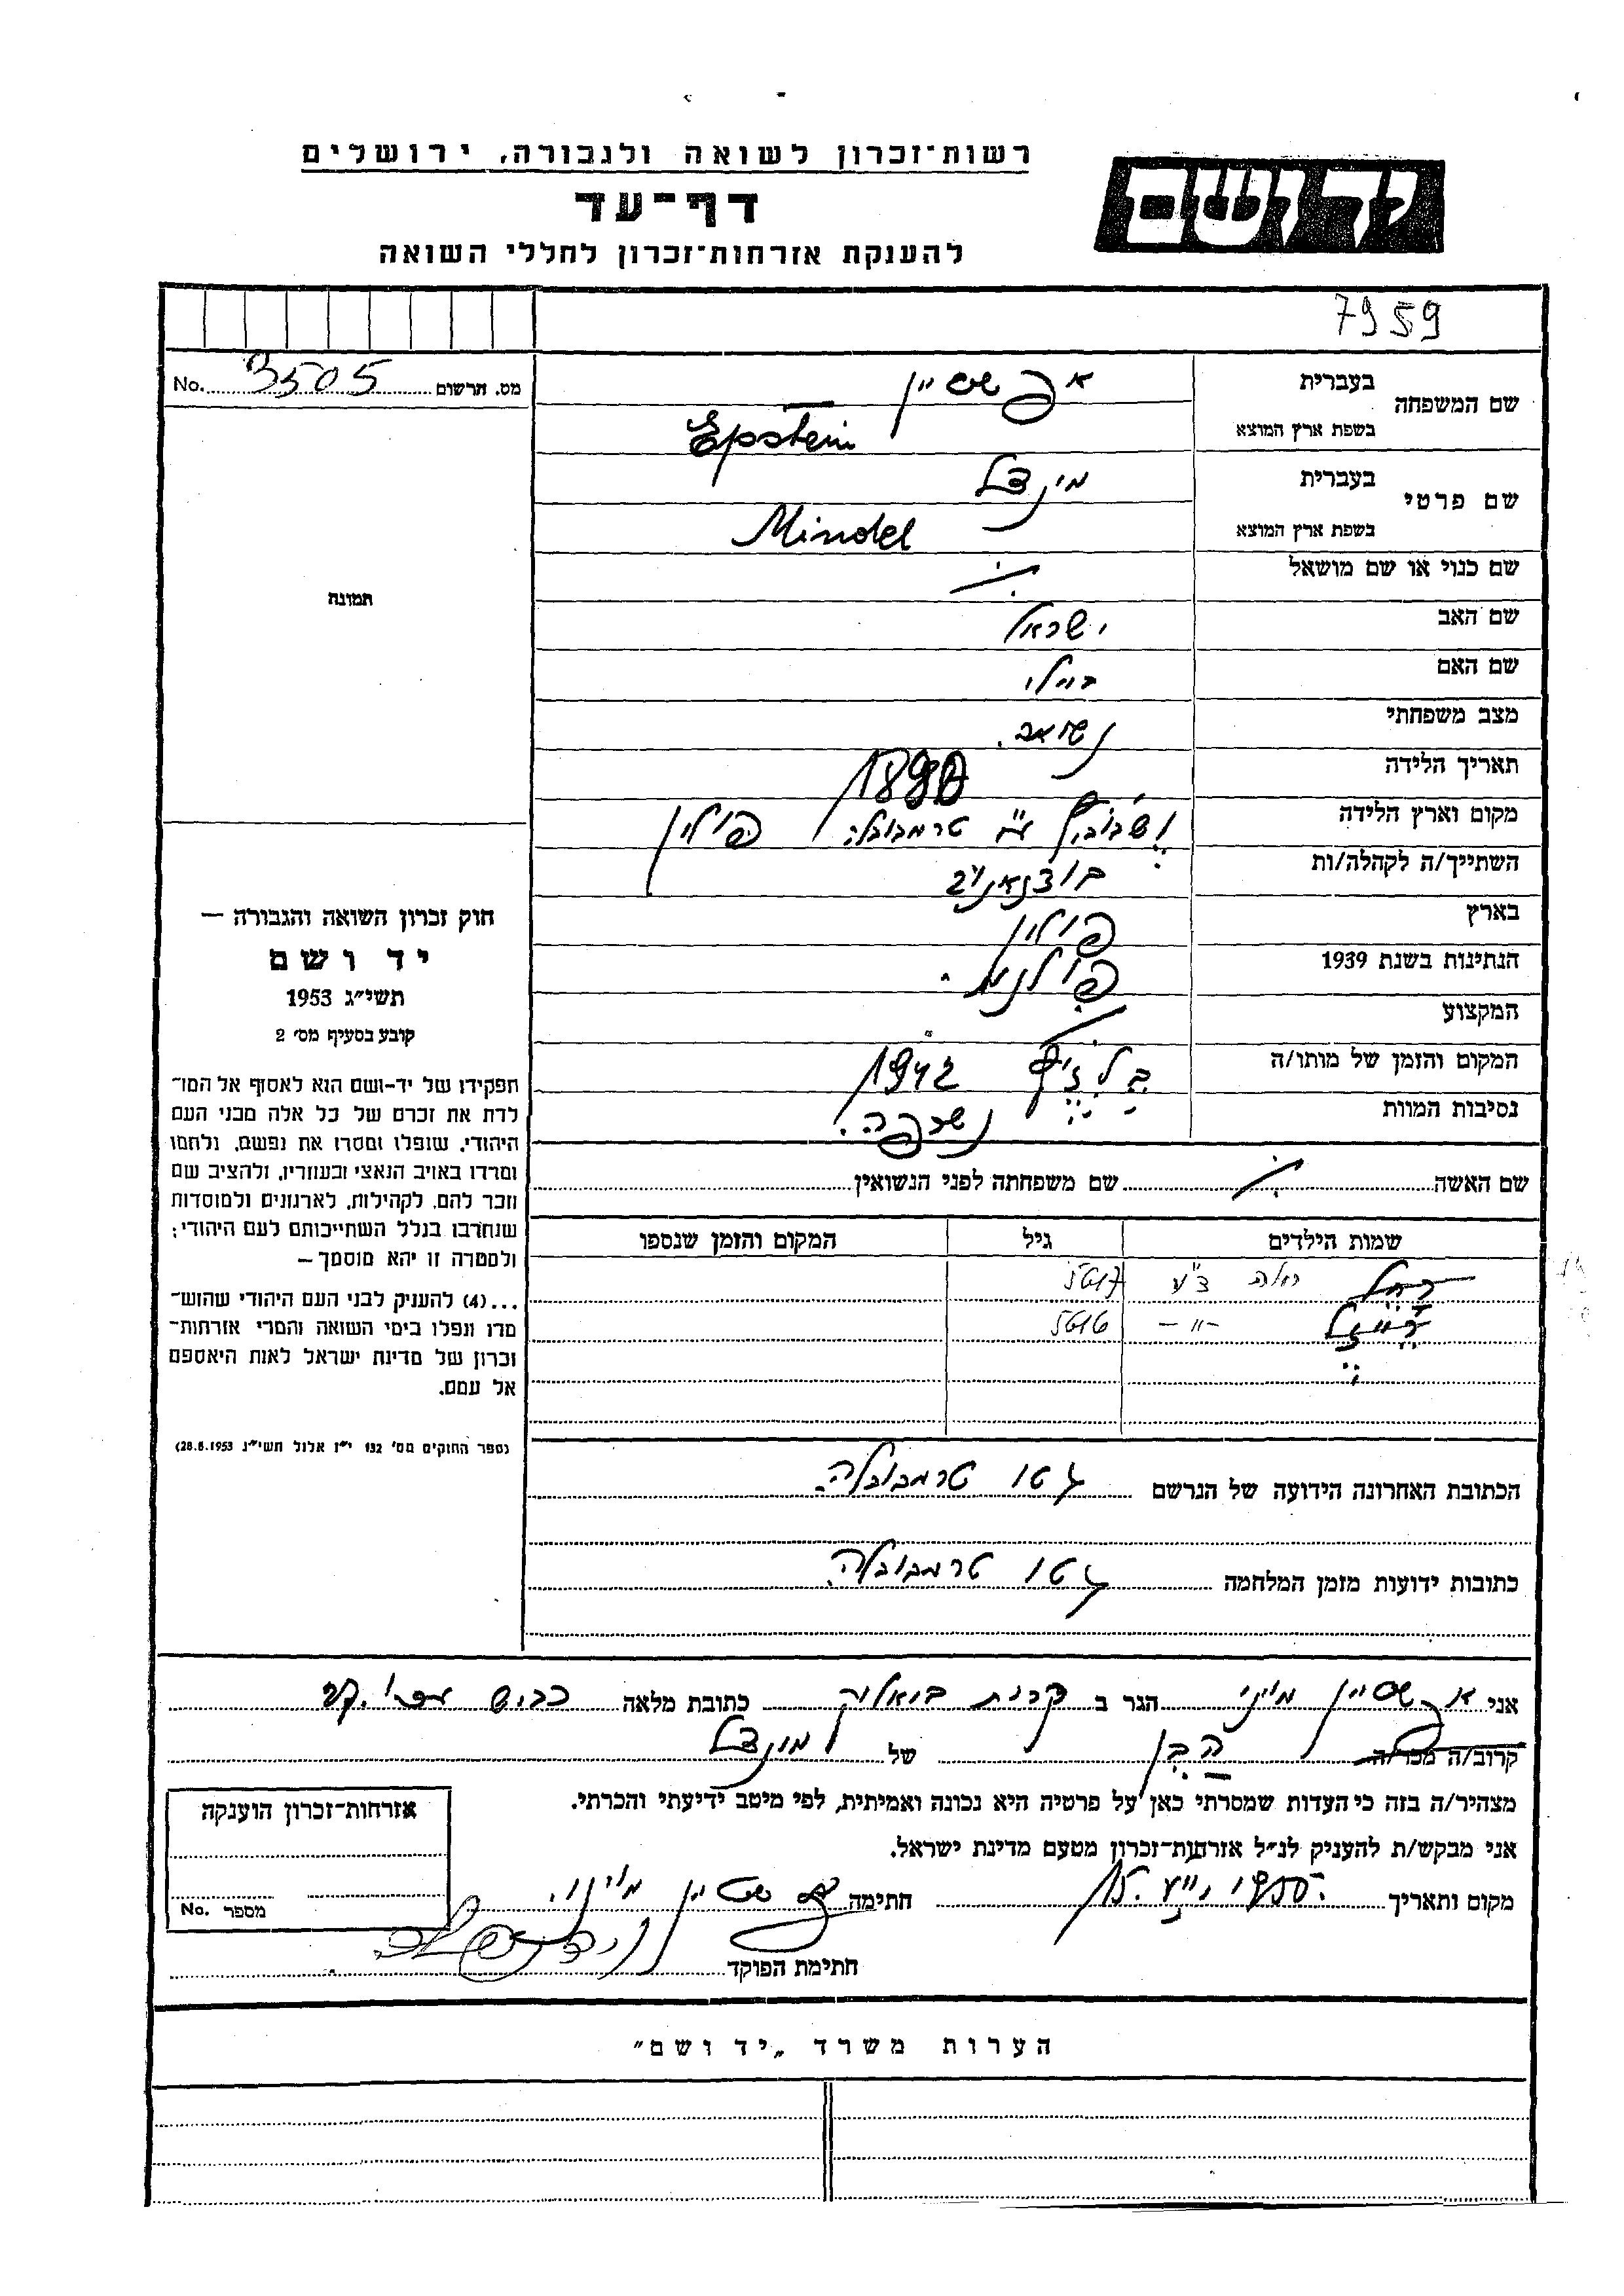 רשות־זכרון לשואה ולגבורה, ירושלים
יד ושם
דף־עד
להענקת אזרחות־זכרון לחללי השואה
7959
מס. תרשום No. 3505
שם המשפחה
בעברית אפשטיין
בשפת ארץ המוצא Epstein
שם פרטי
בעברית מינדל
בשפת ארץ המוצא Mindel
שם כנוי או שם מושאל
שם האב ישראל
שם האם ביילי
מצב משפחתי נשואה.
תאריך הלידה 1890
מקום וארץ הלידה טרמבובלה פולין
השתייך/ה לקהלה/ות בוצנאניב
בארץ פולין
הנתינות בשנת 1939 פולנית.
המקצוע
המקום והזמן של מותו/ה בלזיץ 1942
נסיבות המוות נשרפה.
שם האשה שם משפחתה לפני הנשואין
שמות הילדים גיל המקום והזמן שנספו
רחל ראה ד"ע 5617
רייזל -״- 5616
הכתובת האחרונה הידועה של הנרשם גטו טרמבובלה
כתובות ידועות מזמן המלחמה גטו טרמבובלה
תמונה
חוק זכרון השואה והגבורה —
יד ושם
תשי״ג 1953
קובע בסעיף מס׳ 2
תפקידו של יד-ושם הוא לאסוף אל המו־
לדת את זכרם של כל אלה מבני העם
היהודי, שנפלו ומסרו את נפשם, נלחמו
ומרדו באויב הנאצי ובעוזריו, ולהציב שם
וזכר להם, לקהילות, לארגונים ולמוסדות
שנחרבו בגלל השתייכותם לעם היהודי;
ולמטרה זו יהא מוסמך —
...(4) להעניק לבני העם היהודי שהוש־
מדו ונפלו בימי השואה והמרי אזרחות־
זכרון של מדינת ישראל לאות היאספם
אל עמם.
(ספר החוקים מס׳ 132 י״ז אלול תשי״ג 28.8.1953)
אני אפשטיין מוני הגר ב קרית ביאליק כתובת מלאה כביש עכו
קרוב/ה מכר/ה הבן של מינדל
מצהיר/ה בזה כי העדות שמסרתי כאן על פרטיה היא נכונה ואמיתית, לפי מיטב ידיעתי והכרתי.
אני מבקש/ת להעניק לנ״ל אזרחות־זכרון מטעם מדינת ישראל.
מקום ותאריך חתימה אפשטיין מוני
חתימת הפוקד
אזרחות־זכרון הוענקה
מספר No.
הערות משרד „יד ושם״